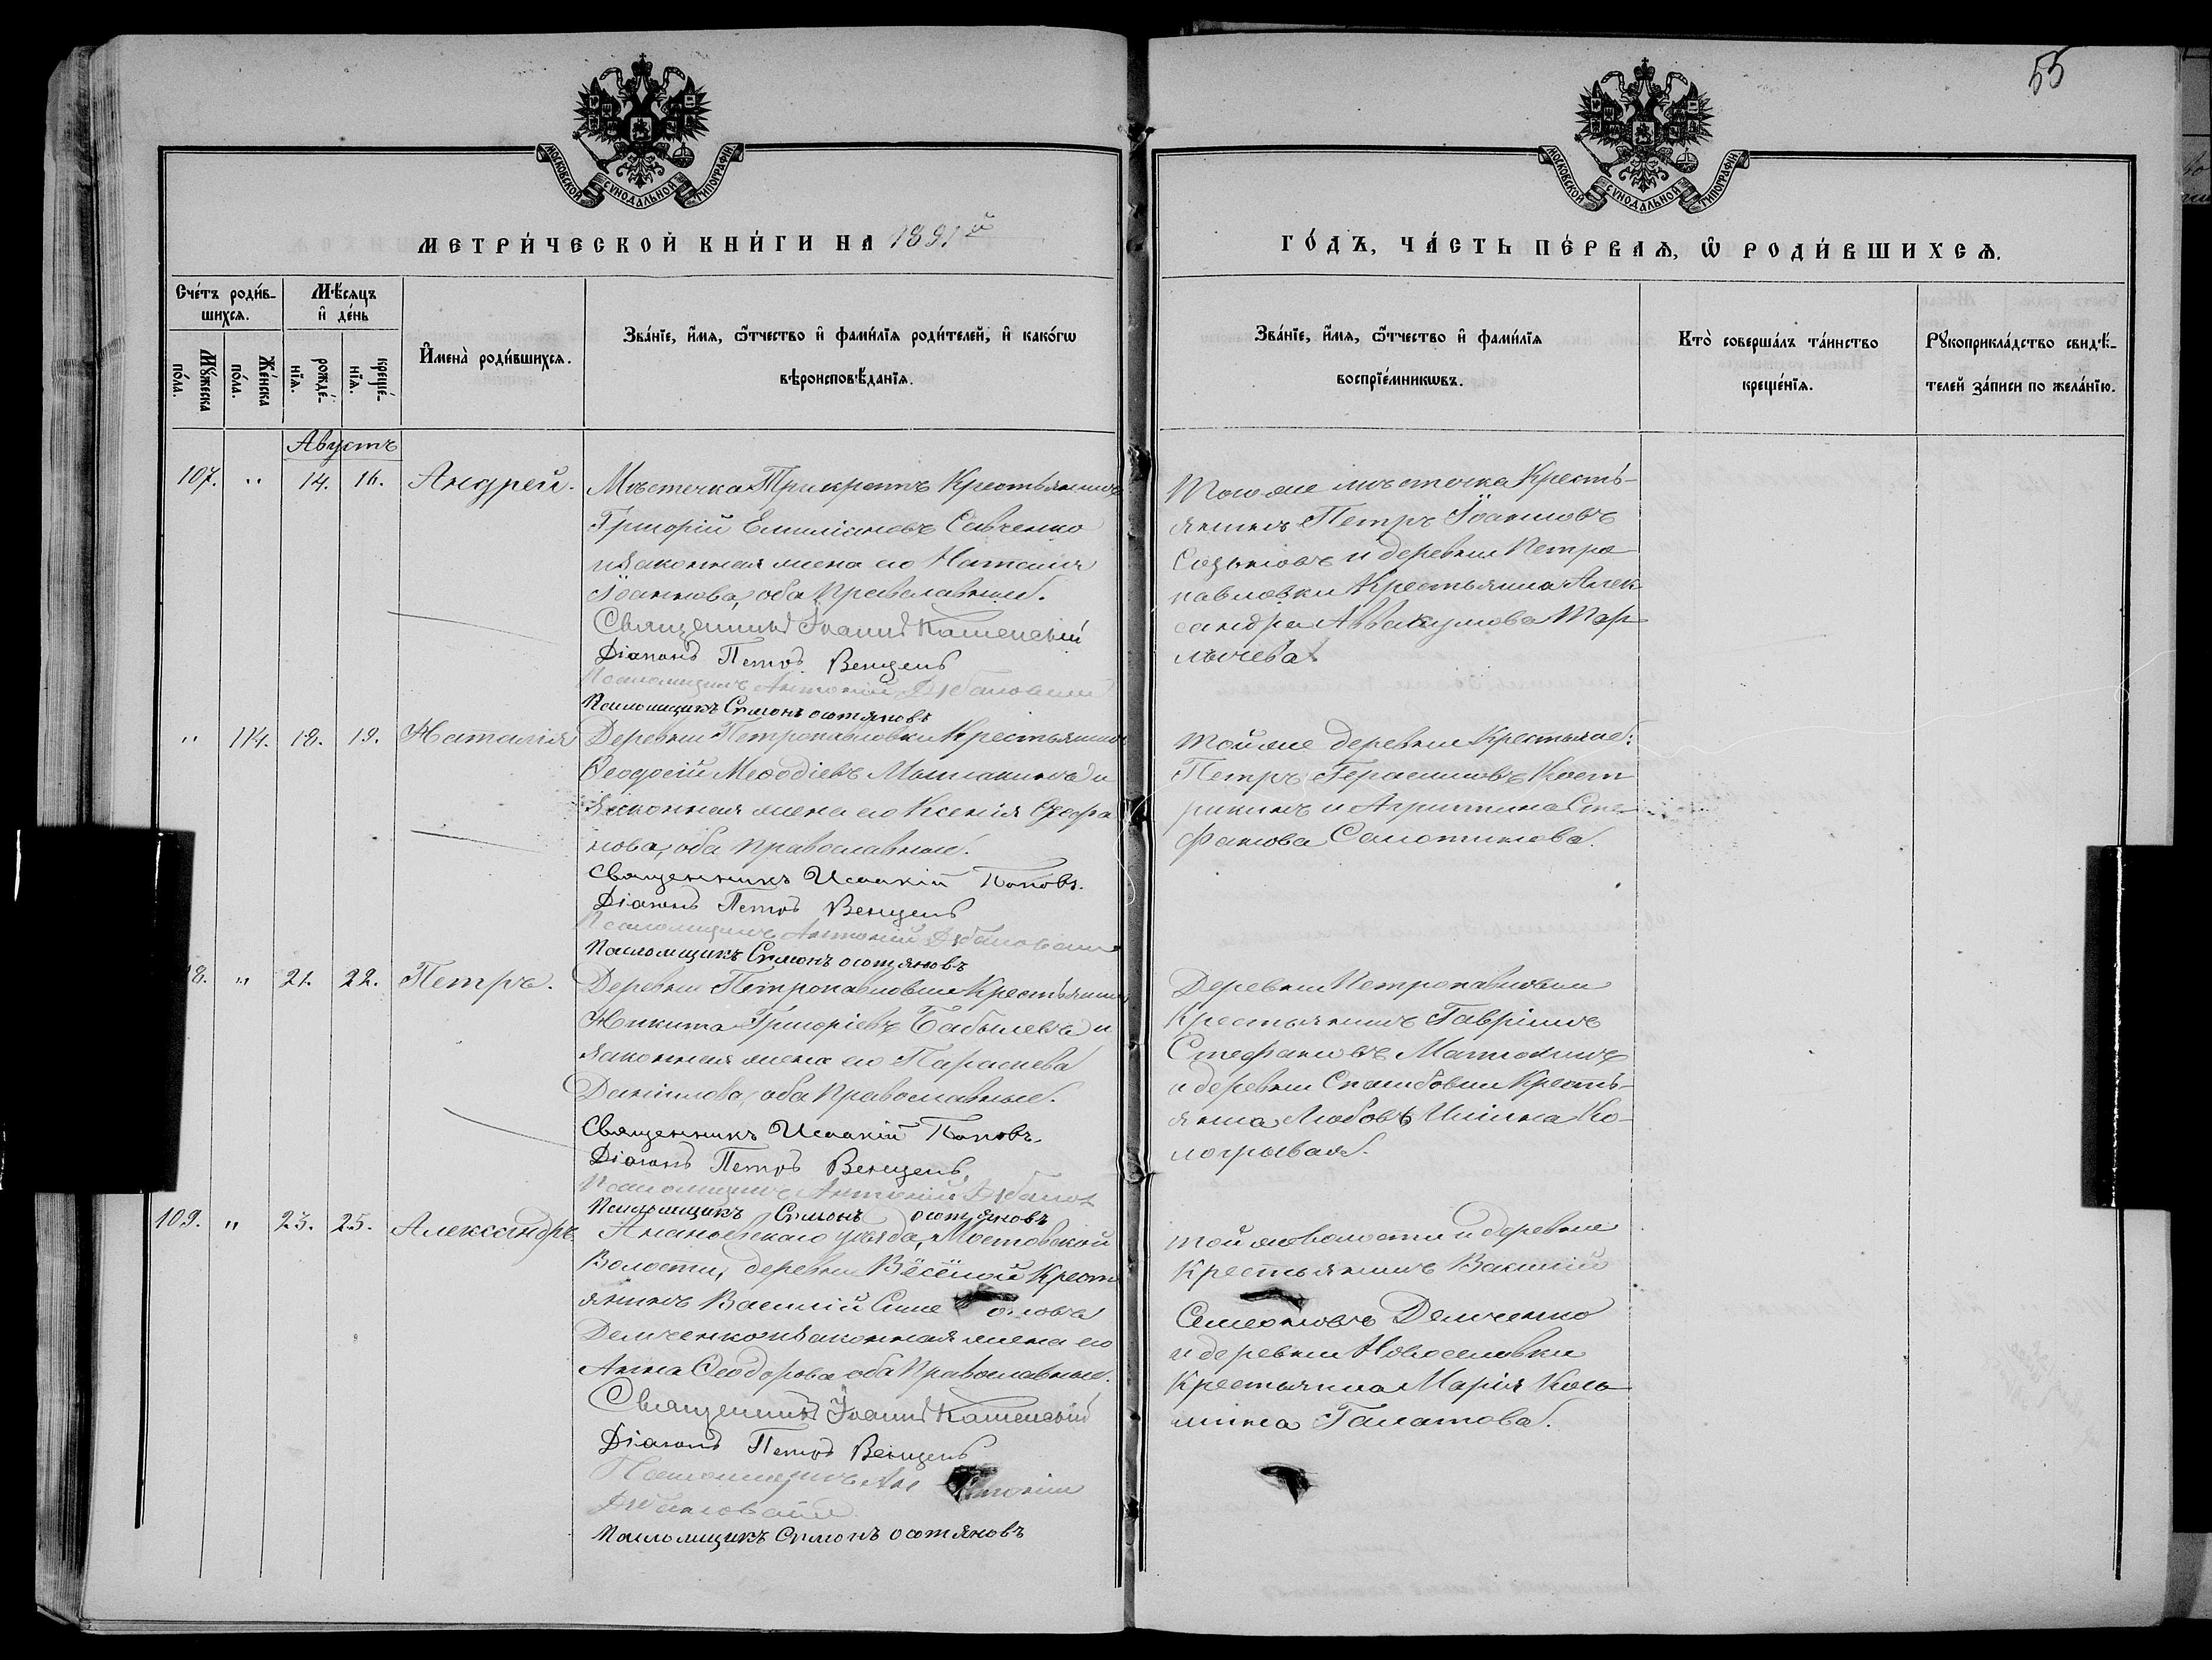 55
МОСКОВСКОЙ СѴНОДАЛЬНОЙ ТИПОГРАФІИ.
МЕТРИ́ЧЕСКОЙ КНИ́ГИ НА 1891й
Сче́тъ роди́в-
шихсѧ.
Мꙋ́жеска
по́ла.
Же́нска
по́ла.
Мѣ́сѧцъ
и҆ де́нь
рожде́-
нїѧ.
креще́-
нїѧ.
И҆мена̀ роди́вшихсѧ.
Зва́нїе, и҆́мѧ, ѻ҆́тчество и҆ фами́лїѧ роди́телей, и҆ како́гѡ
вѣроисповѣ́данїѧ.
Августъ
107. " 14. 16. Андрей.
Мѣстечка Трикратъ Крестьянинъ
Григорій Емиліановъ Савченко
и законная жена его Наталія
Іоаннова, оба Православные.
Священникъ Іоаннъ Каменскій
Діаконъ Петръ Венцель
Псаломщикъ Антоній
Псаломщикъ Симонъ осотяновъ
" 114. 18. 19. Наталія
Деревни Петропавловки Крестьянинъ
Ѳеодосій Меѳодіевъ и
законная жена его Ксенія
нова, оба Православные.
Священникъ Исаакій Поповъ.
Діаконъ Петръ Венцель
Псаломщикъ Антоній
Псаломщикъ Симонъ осотяновъ
8. " 21. 22. Петръ.
Деревни Петропавловки Крестьянинъ
Никита Григоріевъ Бабылевъ и
законная жена его Параскева
Даніилова, оба Православные.
Священникъ Исаакій Поповъ.
Діаконъ Петръ Венцель
Псаломщикъ Антоній
Псаломщикъ Симонъ осотяновъ
109. " 23. 25. Александръ
Ананьевскаго уѣзда, Мостовской
Волости, деревни Вёсёлой Крестья
янинъ Василій
Демченко и законная жена его
Анна Ѳеодорова оба Православные.
Священникъ Іоаннъ Каменскій
Діаконъ Петръ Венцель
Псаломщикъ Антоній
Псаломщикъ Симонъ осотяновъ
МОСКОВСКОЙ СѴНОДАЛЬНОЙ ТИПОГРАФІИ.
ГО́ДЪ, ЧА́СТЬ ПЕ́РВАѦ, Ѡ҆ РОДИ́ВШИХСѦ.
Зва́нїе, и҆́мѧ, ѻ҆́тчество и҆ фами́лїѧ
воспрїе́мникѡвъ.
Кто̀ соверша́лъ та́инство
креще́нїѧ.
Рꙋкоприкла́дство свидѣ́-
телей за́писи по жела́нїю.
Того же мѣстечка Кресть-
янинъ Петръ Іоанновъ
и деревни Петро
павловки Крестьянка Алек
сандра Аввакумова
Той же деревни Крестьяне:
Петръ Герасимовъ
и Агрипина Сте
фанова
Деревни Петропавловки
Крестьянинъ Гавріилъ
Стефановъ
и деревни Кресть-
янка Любовь Ильина Ко-
логрывая.
Той же волости и деревни
Крестьянинъ Василій
Семеоновъ Демченко
и деревни Новоселовки
Крестьянка Марія Козь
мина Галатова.